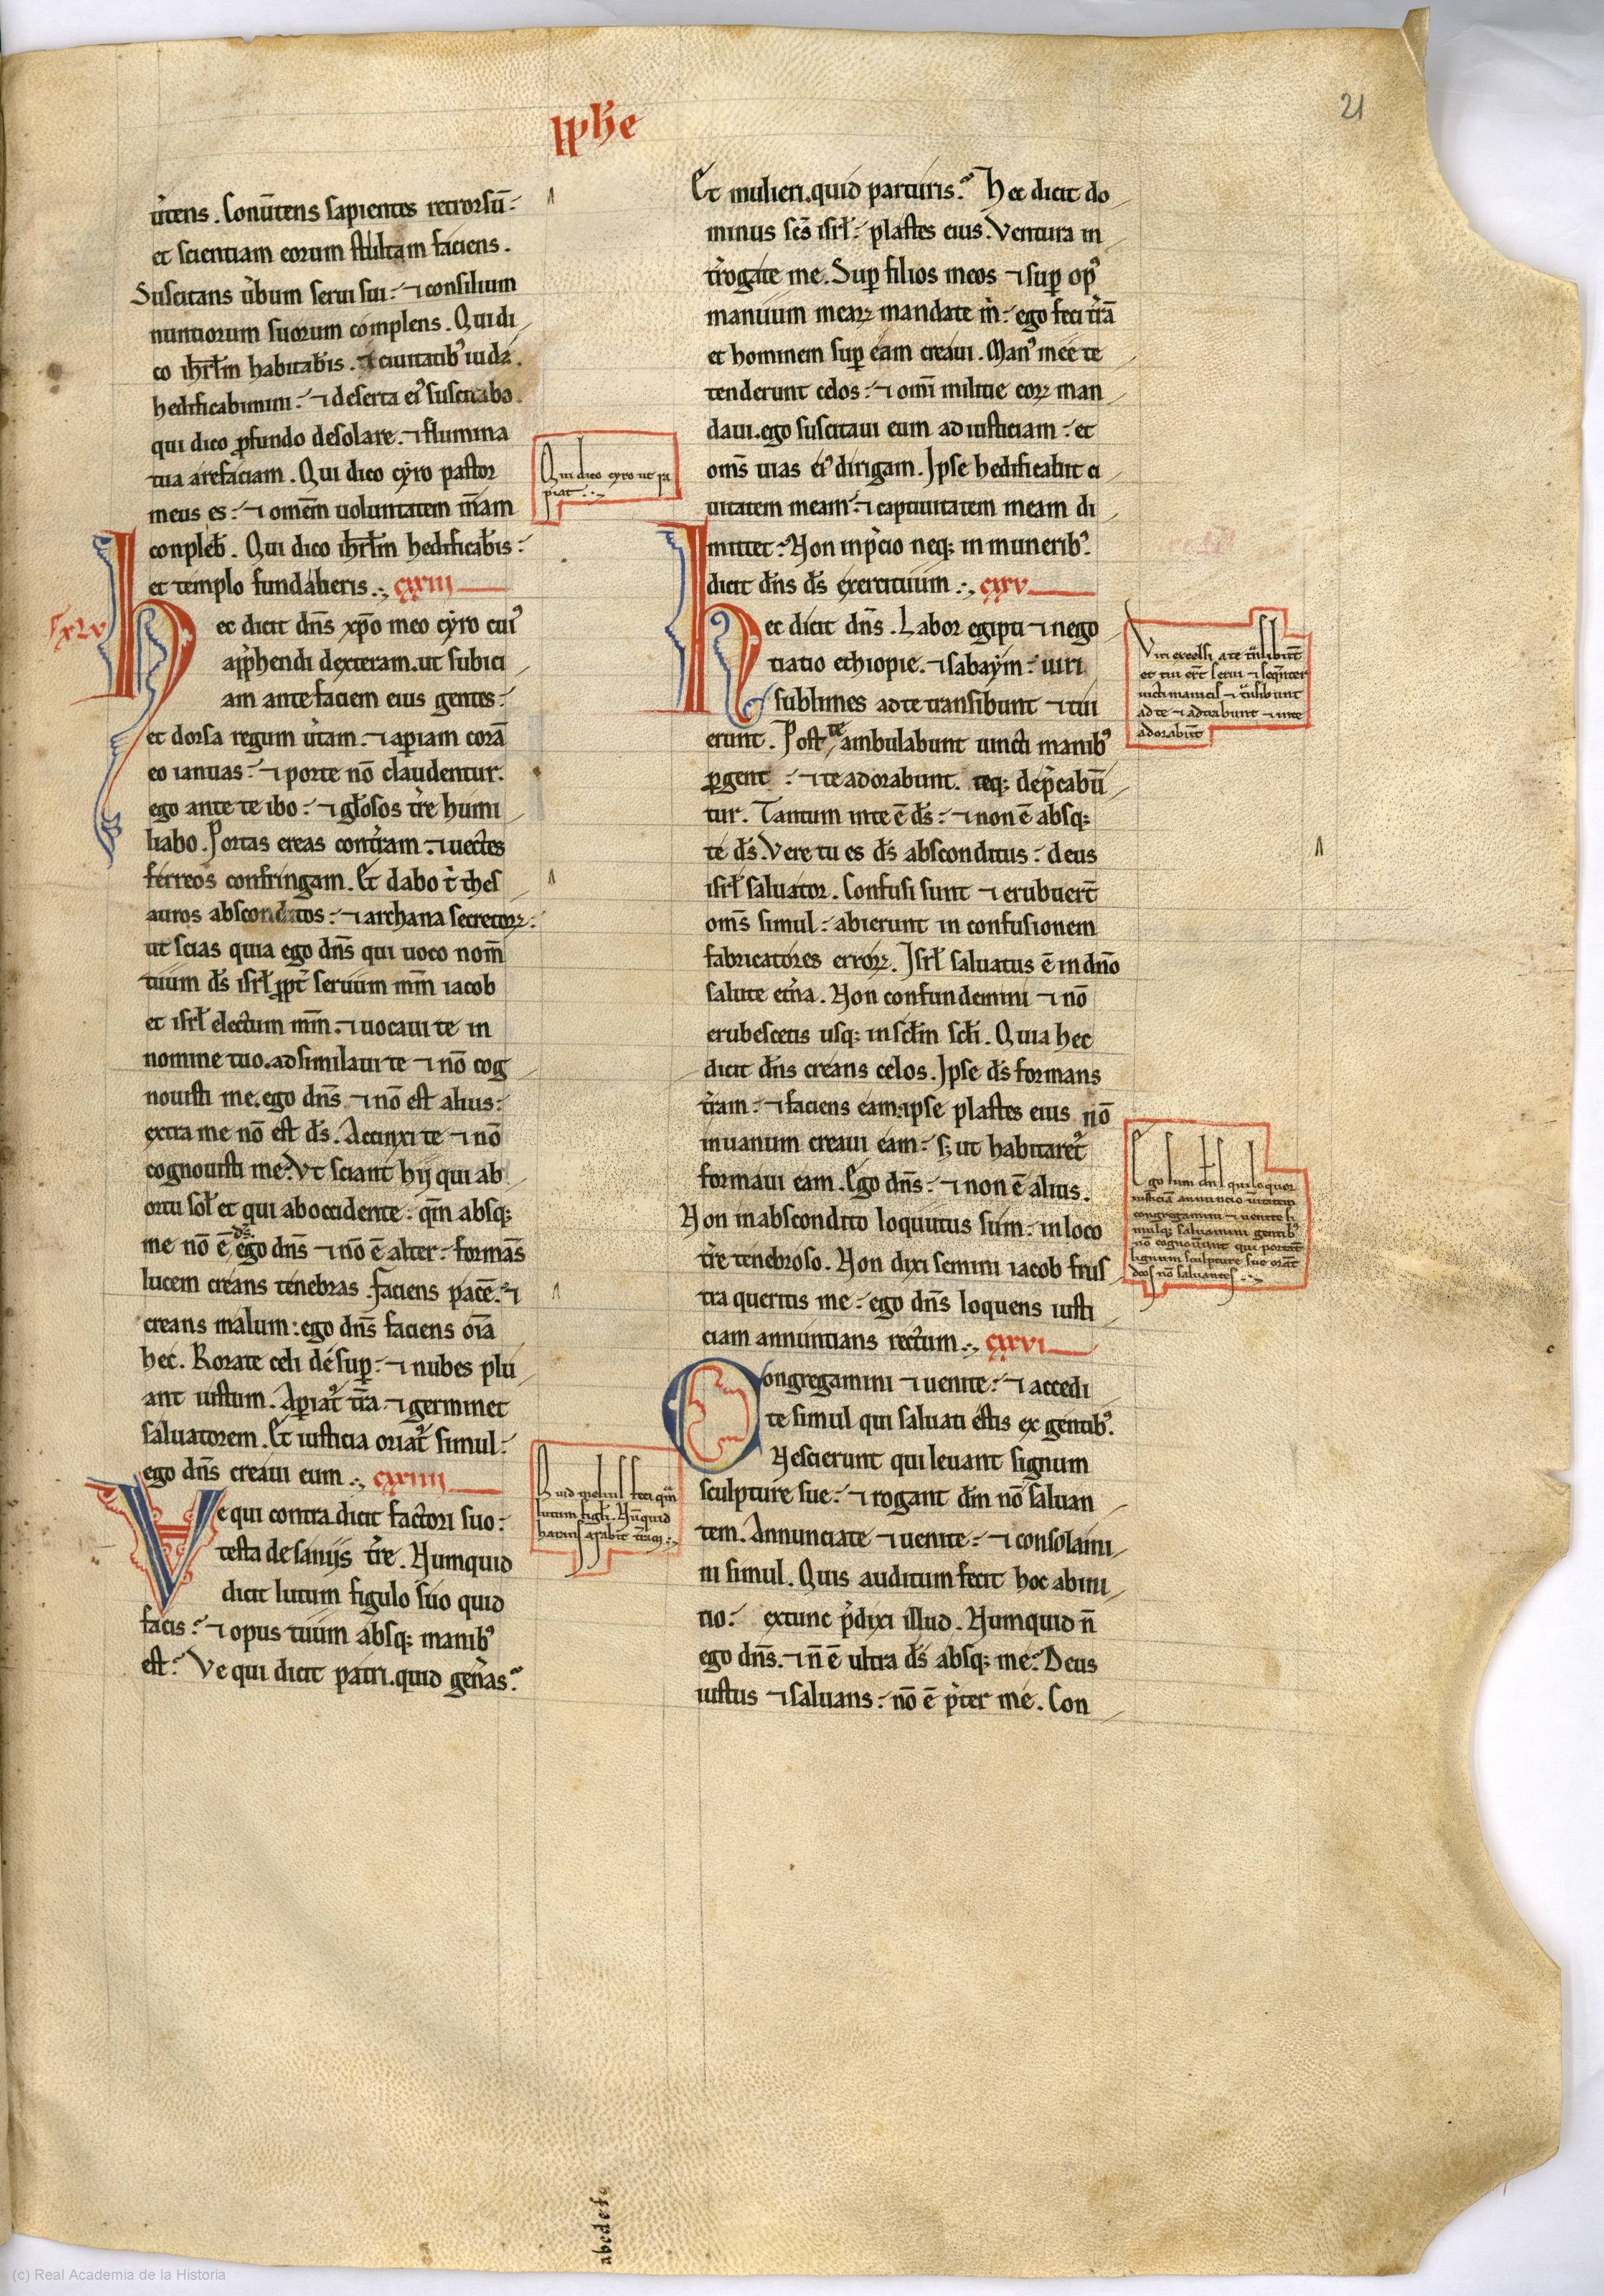 21
p̱he
ữtens. Conũtens sapientes retrorsũ:
et scientiam eorum stultam faciens.
Suscitans ũbum serui sui: ⁊ consilium
nuntiorum suorum complens. Qui di
co ihrl̃m habitab̃is. ⁊ ciuitatibꝰ iuda.
hedificabimini: ⁊ deserta eiꝰ suscitabo.
qui dico ꝓfundo desolare. ⁊ flumina
tua arefaciam. Qui dico cyro pastor
meus es: ⁊ omẽm uoluntatem m̃am
conpleb̃. Qui dico ihrl̃m hedificab̃is:
et templo fundaberis.:, cxxiii
xlv
Hec dicit dñs xp̃o meo cyro cuiꝰ
app̃hendi dexteram. ut subici
am ante faciem eius gentes:
et dorsa regum ũtam. ⁊ aꝑiam corã
eo ianuas: ⁊ porte nõ claudentur.
ego ante te ibo: ⁊ gl̃osos t̃re humi
liabo. Portas ereas cont̃am. ⁊ uectes
ferreos confringam. Et dabo t̃ thes
auros absconditos: ⁊ archana secretoꝝ:
ut scias quia ego dñs qui uoco nom̃
tuum d̃s isrl̃ ꝓpt̃ seruum m̃m iacob
et isrl̃ electum m̃m. ⁊ uocaui te in
nomine tuo. adsimilaui te ⁊ nõ cog
nouisti me. ego dñs ⁊ nõ est alius:
extra me nõ est d̃s. Accinxi te ⁊ nõ
cognouisti me: Vt sciant hij qui ab
ortu sol̃ et qui ab occidente: qm̃ absqꝫ
me nõ ẽ d̃s. ego dñs ⁊ nõ ẽ alter: formãs
lucem creans tenebras. faciens pacẽ: ⁊
creans malum: ego dñs faciens oĩa
hec. Rorate celi desuꝑ: ⁊ nubes plu
ant iustum. Aꝑiat̃ t̃ra ⁊ germinet
saluatorem. Et iusticia oriat̃ simul:
ego dñs creaui eum.:, cxxiiii
Ve qui contradicit factori suo:
testa de samijs t̃re. Numquid
dicit lutum figulo suo quid
facis: ⁊ opus tuum absqꝫ manibꝰ
est? Ve qui dicit patri. quid geñas?
Qui dico cyro ut sa
piat.:,
Quid meliuſ feci qm̃
lutum figl̃i. Nũquid
harans arabit t̃ram:,
Et mulieri. quid parturis? Hec dicit do
minus sc̃s isrl̃: plastes eius. Ventura in
t̃rogate me. Suꝑ filios meos ⁊ suꝑ opꝰ
manuum meaꝝ mandate m̃: ego feci t̃rã
et hominem suꝑ eam creaui. Manꝰ mee te
tenderunt celos: ⁊ omĩ militie eoꝝ man
daui. ego suscitaui eum ad iusticiam: et
oms̃ uias eiꝰ dirigam. Ipse hedificabit ci
uitatem meam: ⁊ captiuitatem meam di
mittet: Non in p̃cio neqꝫ in muneribꝰ.
dicit dñs d̃s exercituum.:, cxxv
Hec dicit dñs. Labor egipti ⁊ nego
tiatio ethiopie. ⁊ sabaym: uiri
sublimes ad te transibunt ⁊ tui
erunt. Post te ambulabunt uincti manibꝰ
ꝑgent: ⁊ te adorabunt. teqꝫ dep̃cabũ
tur. Tantum in te ẽ d̃s: ⁊ non ẽ absqꝫ
te d̃s. Vere tu es d̃s absconditus: deus
isrl̃ saluator. Confusi sunt ⁊ erubuer̃t
oms̃ simul: abierunt in confusionem
fabricatores erroꝝ. Isrl̃ saluatus ẽ in dño
salute et̃na. Non confundemini ⁊ nõ
erubescetis usqꝫ in scl̃m scl̃i. Quia hec
dicit dñs creans celos. Ipse d̃s formans
t̃ram: ⁊ faciens eam: ipse plastes eius nõ
in uanum creaui eam: sꝫ ut habitaret̃
formaui eam. Ego dñs: ⁊ non ẽ alius.
Non in abscondito loquutus sum: in loco
t̃re tenebroso. Non dixi semini iacob frus
tra queritis me: ego dñs loquens iusti
ciam annuntians rectum.:, cxxvi
Congregamini ⁊ uenite: ⁊ accedi
te simul qui saluati estis ex gentibꝰ.
Nescierunt qui leuant signum
sculpture sue: ⁊ rogant dm̃ nõ saluan
tem. Annunciate ⁊ uenite: ⁊ consolami
ni simul. Quis auditum fecit hoc ab ini
tio: extunc p̃dixi illud. Numquid ñ
ego dñs. ⁊ ñ ẽ ultra d̃s absqꝫ me? Deus
iustus ⁊ saluans: nõ ẽ p̃ter me. Con
Viri excelsi a te t̃nsibunt
et tui er̃t serui ⁊ seq̃nter
uicti manicis ⁊ t̃nsibunt
ad te ⁊ adorabunt ⁊ in te
adorabũt
Ego sum dñs qui loquor
iusticiã annuncio ũitatem
congregamini ⁊ uenite
simulqꝫ saluamini gentibꝰ
nõ cognoũunt qui portãt
lignum sculpture sue orãt
deos nõ saluantes.:,
abcdef
(c) Real Academia de la Historia